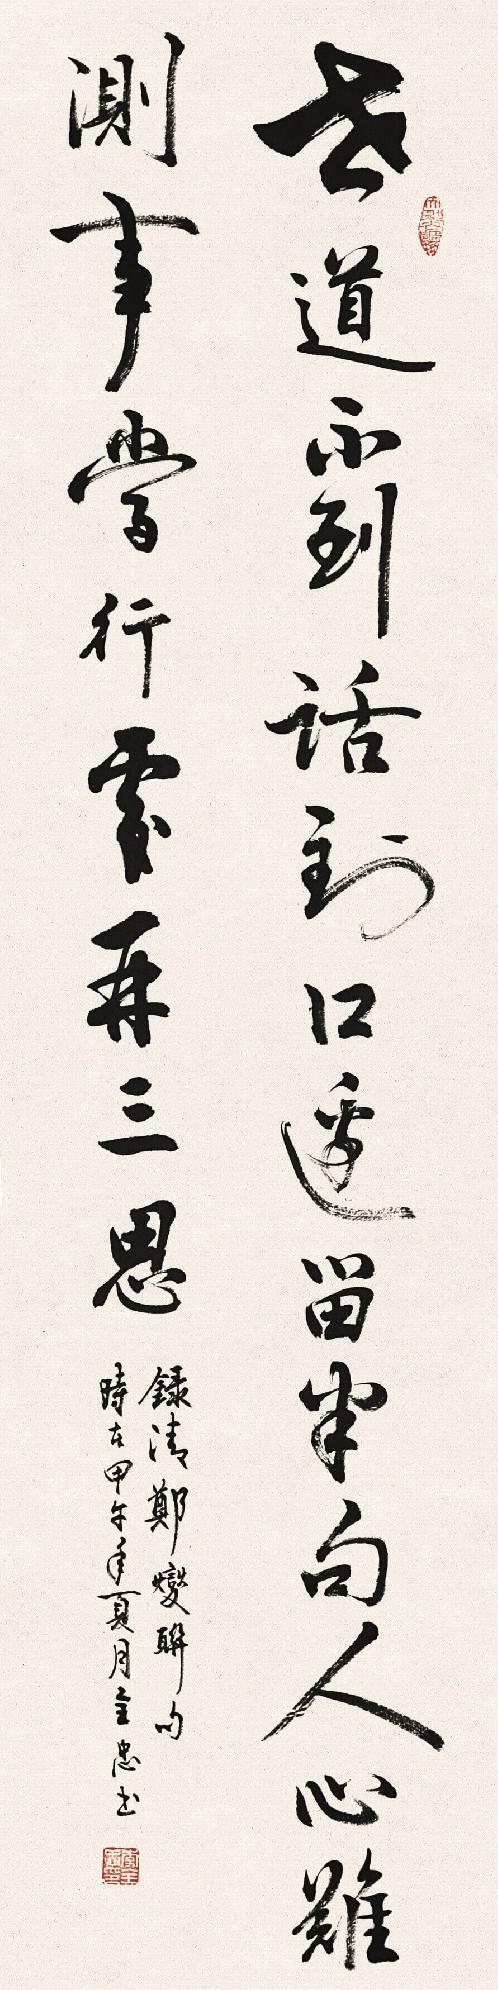 世道不到話到口邊留半句人心難
測事當行處再三思
錄清鄭燮聯句
時在甲午年夏月全忠書